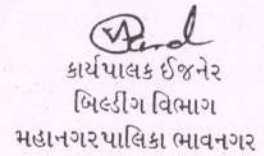 કાર્યપાલક ઈજનેર
બિલ્ડીંગ વિભાગ
મહાનગરપાલિકા ભાવનગર